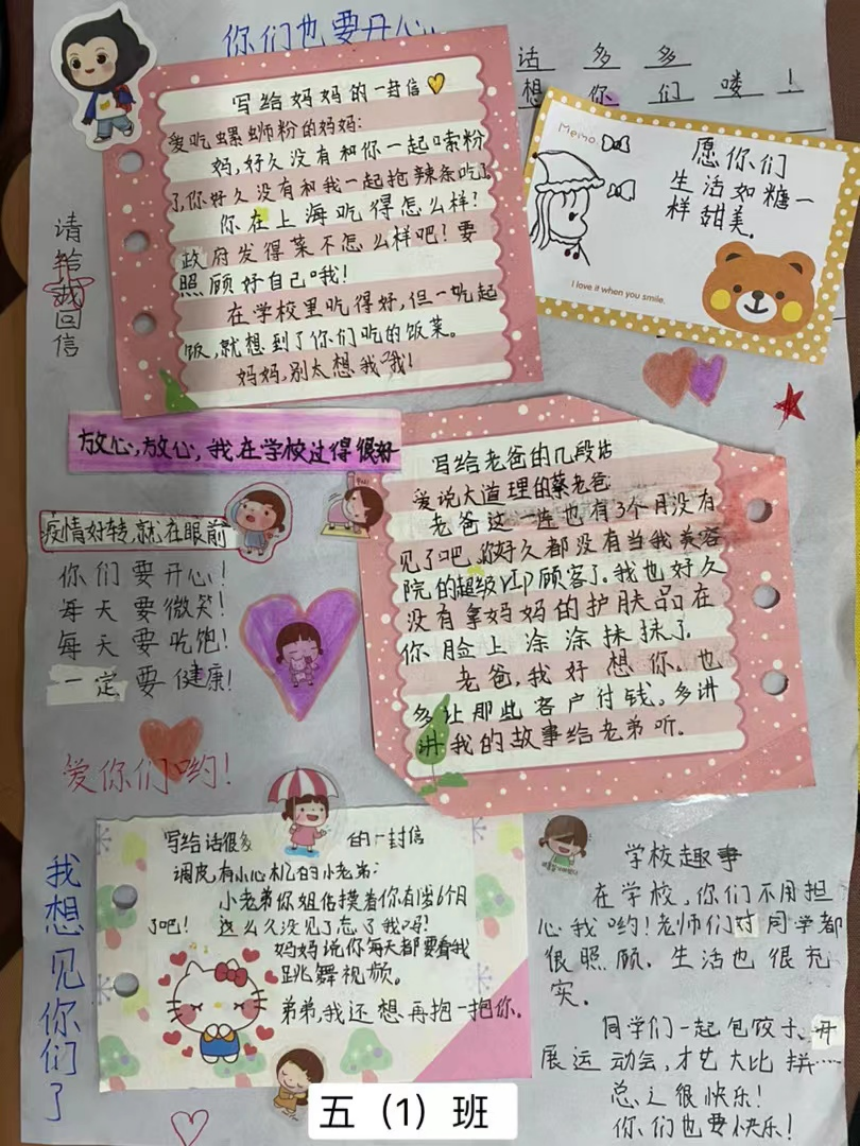 你们也要开心.
话多多
想你们喽!
写给妈妈的一封信
爱吃螺蛳粉的妈妈:
妈,好久没有和你一起嗦粉
了,你好久没有和我一起抢辣条吃了
你在上海吃得怎么样?
政府发得菜不怎么样吧?要
照顾好自己哦!
在学校里吃得好,但一吃起
饭,就想到了你们吃的饭菜。
妈妈,别太想我哦!
Memo.
愿你们
生活如糖一
样甜美.
I love it when you smile.
请给我回信
放心,放心,我在学校过得很好
疫情好转,就在眼前
你们要开心!
每天要微笑!
每天要吃饱!
一定要健康!
爱你们哟!
写给老爸的几段话
爱说大道理的蔡老爸
老爸这一连也有3个月没有
见了吧,你好久都没有当我美容
院的超级VIP顾客了。我也好久
没有拿妈妈的护肤品在
你脸上涂涂抹抹了.
老爸,我好想你。也
多让那些客户付钱,多讲
讲我的故事给老弟听.
我想见你们了
写给话很多的一封信
调皮有小心机的小老弟:
小老弟你姐估摸着你有岁6个月
了吧!这么久没见了忘了我吗?
妈妈说你每天都要看我
跳舞视频。
弟弟,我还想再抱一抱你.
学校趣事
在学校,你们不用担
心我哟!老师们对同学都
很照顾.生活也很充
实.
同学们一起包饺子、开
展运动会,才艺大比拼……
总之很快乐!
你们也要快乐!
五（1）班